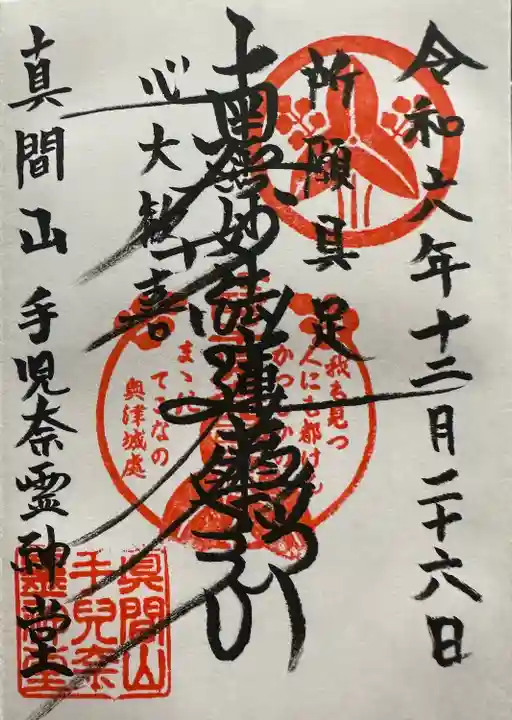 令和六年十二月二十六日
所願具足
南無妙法蓮華経
心大歓喜
真間山 手児奈霊神堂
我も見つ
人にも都げん
かつしかの
まゝの
てこなの
奥津城處
真間山
手兒奈
靈神堂